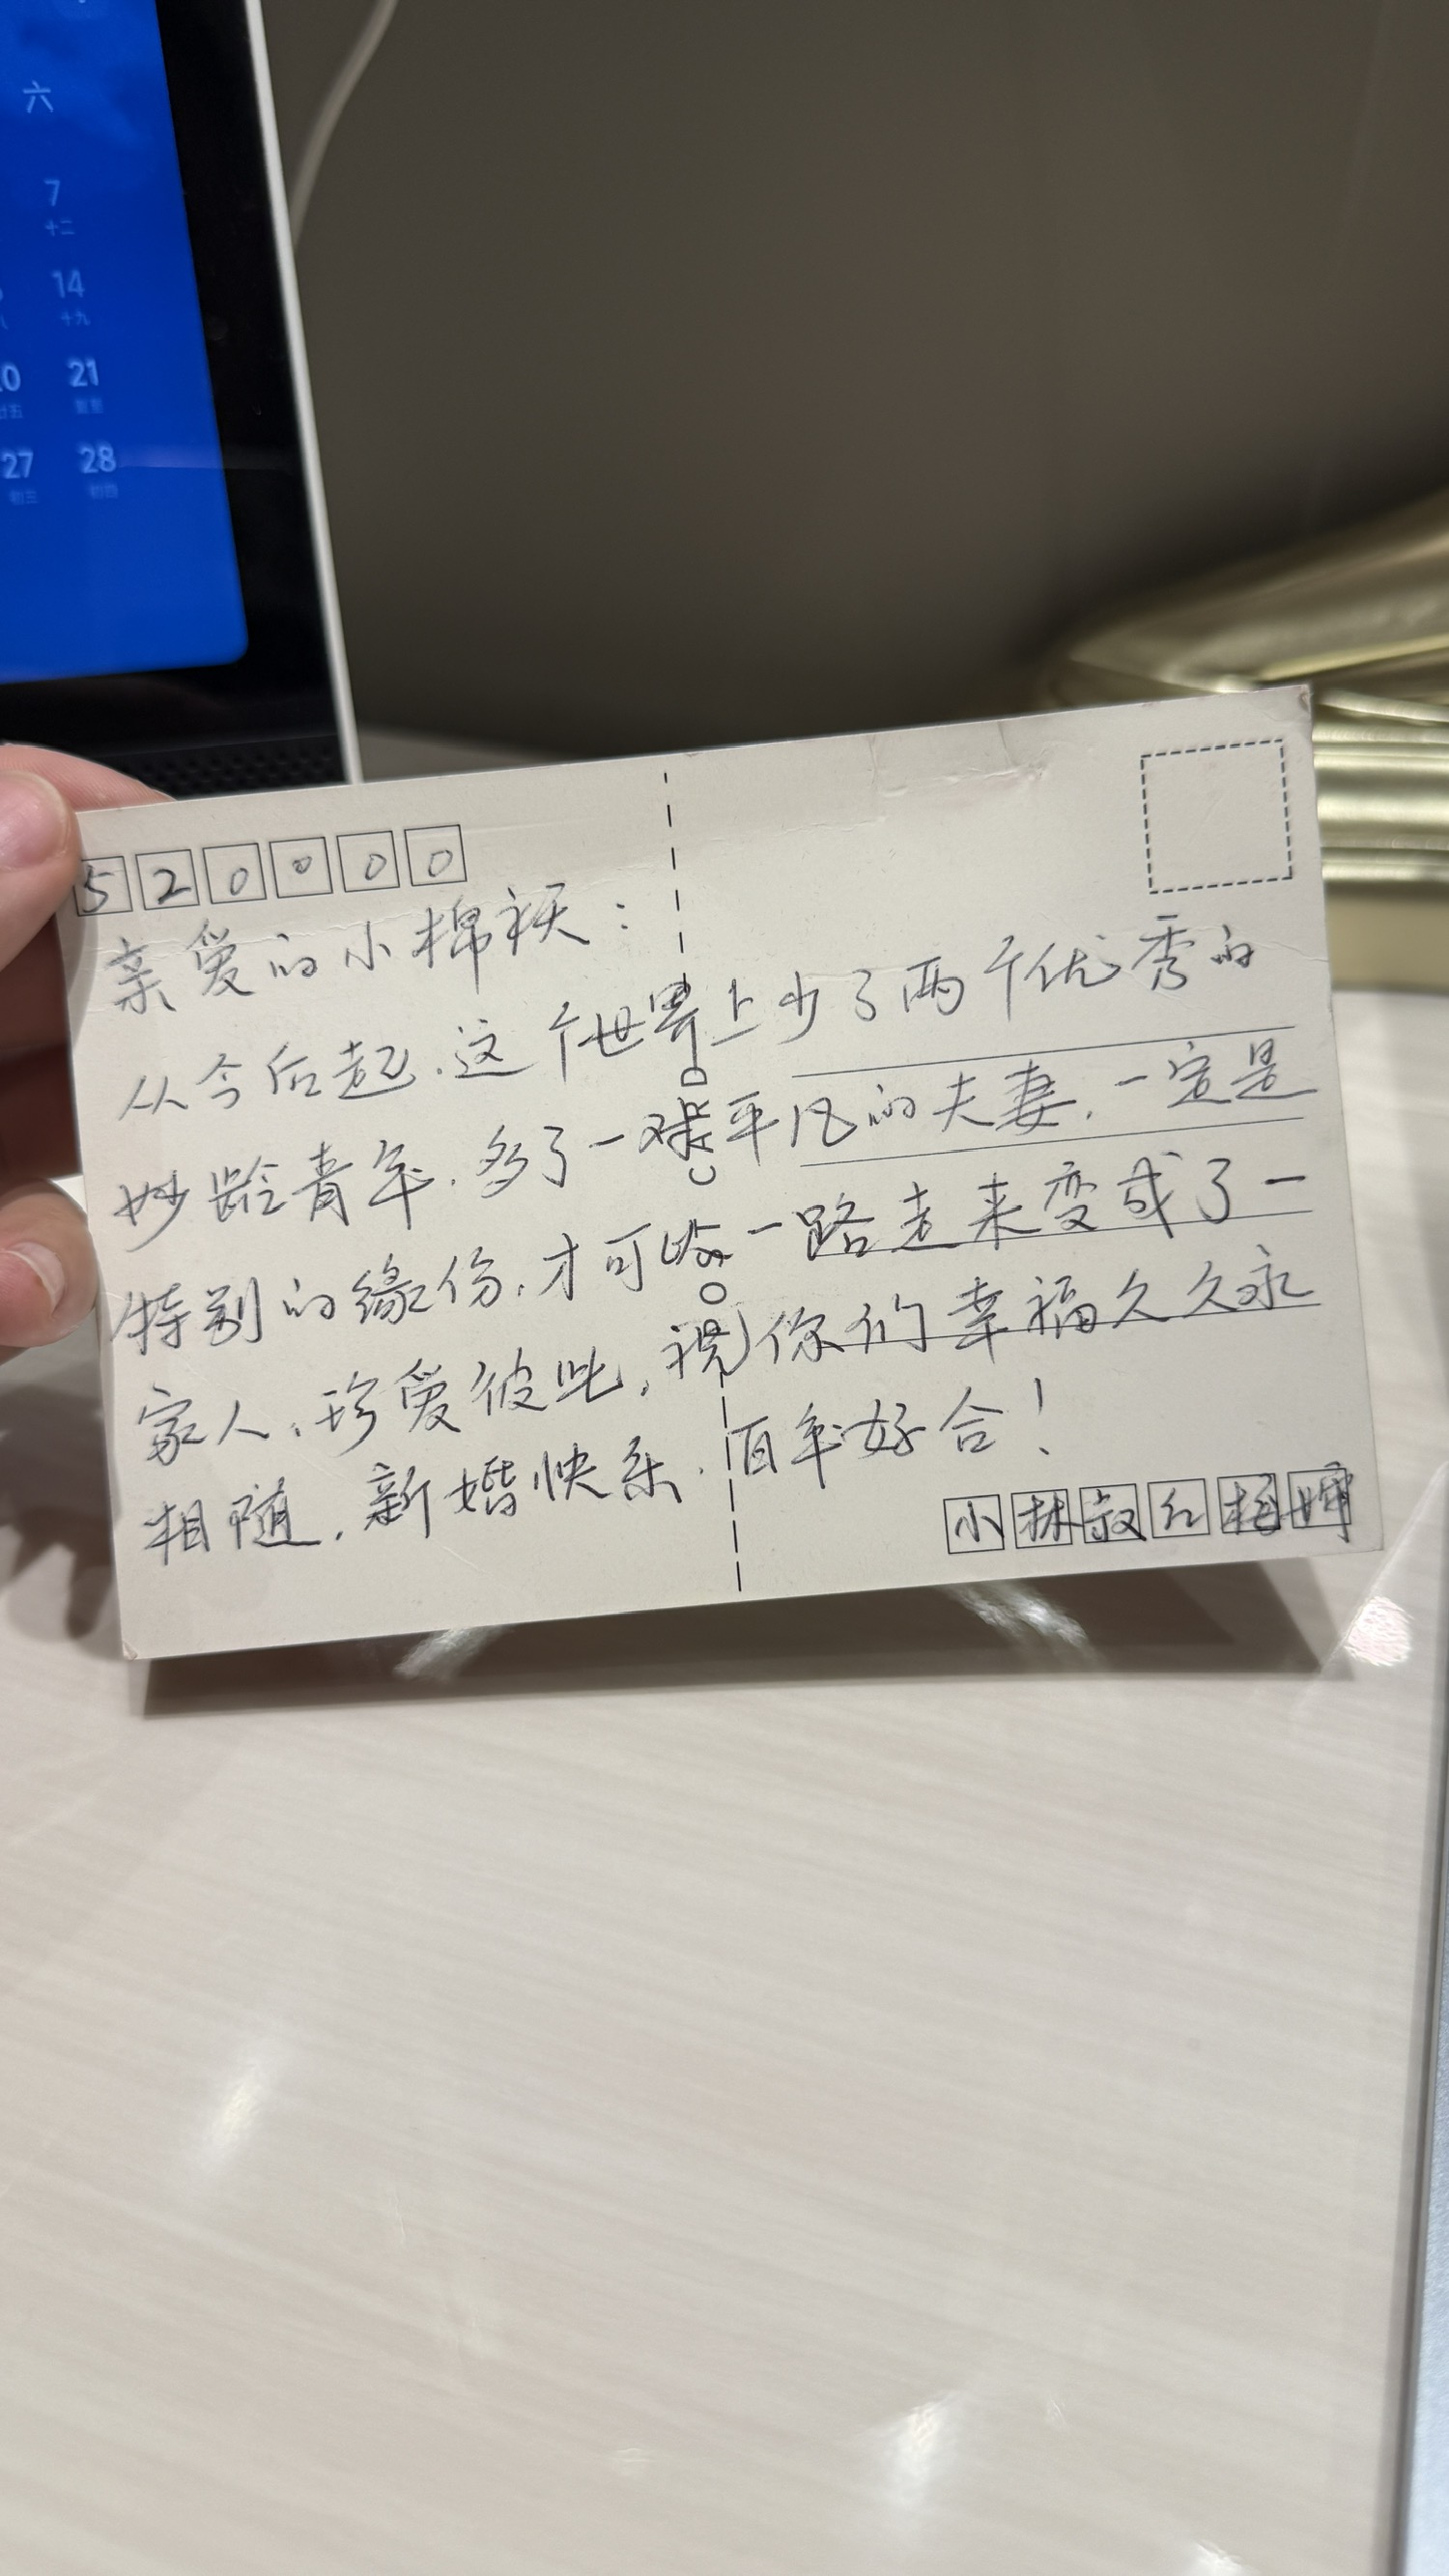 六
7
十二
14
十九
20
廿五
21
夏至
27
初三
28
初四
520000
亲爱的小棉袄:
从今后起.这个世界上少了两个优秀的
妙龄青年.多了一对平凡的夫妻.一定是
特别的缘份.才可以一路走来变成了一
家人.珍爱彼此,祝你们幸福久久永
相随.新婚快乐.百年好合!
小林叔红梅婶